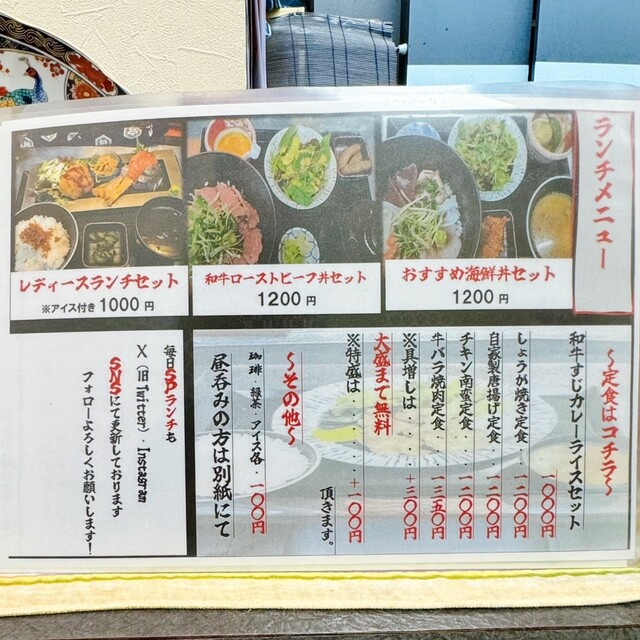 ランチメニュー
おすすめ海鮮丼セット
1200円
和牛ローストビーフ丼セット
1200円
レディースランチセット
※アイス付き 1000円
～定食はコチラ～
和牛すじカレーライスセット
一〇〇〇円
しょうが焼き定食...一二〇〇円
自家製唐揚げ定食...一二〇〇円
チキン南蛮定食...一二〇〇円
牛バラ焼肉定食...一三五〇円
※具増しは...＋三〇〇円
大盛まで無料
※特盛は...＋一〇〇円
頂きます。
～その他～
珈琲・緑茶・アイス各・一〇〇円
昼呑みの方は別紙にて
毎日SBランチも
X（旧Twitter）・Instagram
SNSにて更新しております
フォローよろしくお願いします！